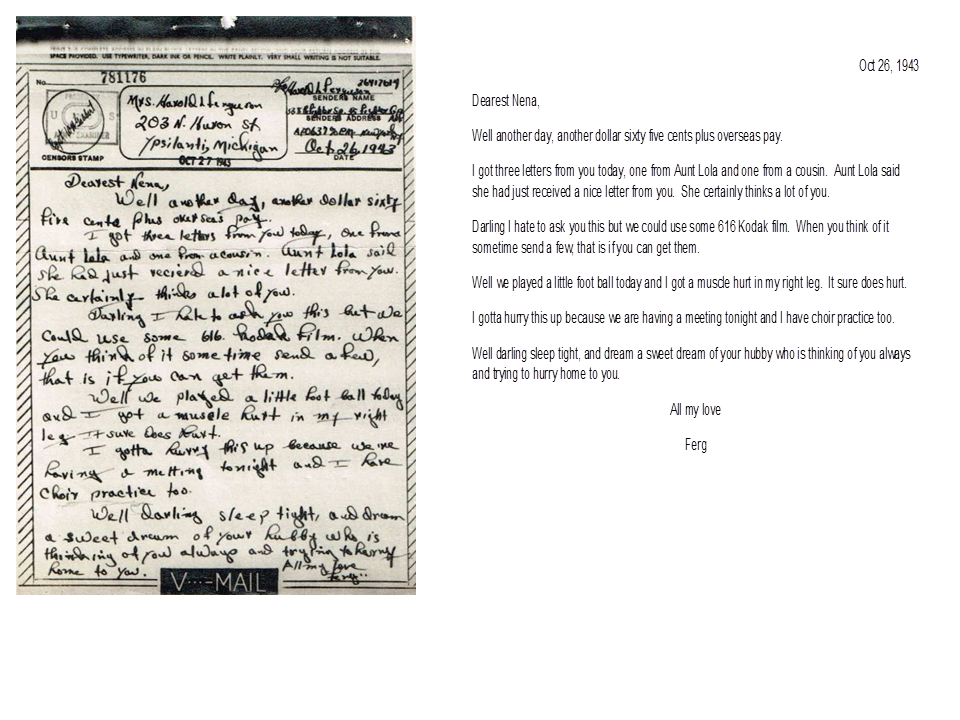 SPACE PROVIDED. USE TYPEWRITER, DARK INK OR PENCIL. WRITE PLAINLY. VERY SMALL WRITING IS NOT SUITABLE.
No. 781176
CENSORS STAMP
Mrs. Harold L Ferguson
203 N. Huron St
Ypsilanti, Michigan
OCT 27 1943
Harold L Ferguson
SENDERS NAME
SENDERS ADDRESS
Oct. 26, 1943
DATE
Dearest Nena,
Well another day, another dollar sixty
five cents plus overseas pay.
I got three letters from you today, one from
Aunt Lola and one from a cousin. Aunt Lola said
she had just recieved a nice letter from you.
She certainly thinks a lot of you.
Darling I hate to ask you this but we
could use some 616 Kodak film. When
you think of it sometime send a few,
that is if you can get them.
Well we played a little foot ball today
and I got a muscle hurt in my right
leg It sure does hurt.
I gotta hurry this up because we are
having a metting tonight and I have
choir practice too.
Well darling sleep tight, and dream
a sweet dream of your hubby who is
thinking of you always and trying to hurry
home to you. All my love
Ferg
V···–MAIL
Oct 26, 1943
Dearest Nena,
Well another day, another dollar sixty five cents plus overseas pay.
I got three letters from you today, one from Aunt Lola and one from a cousin. Aunt Lola said
she had just received a nice letter from you. She certainly thinks a lot of you.
Darling I hate to ask you this but we could use some 616 Kodak film. When you think of it
sometime send a few, that is if you can get them.
Well we played a little foot ball today and I got a muscle hurt in my right leg. It sure does hurt.
I gotta hurry this up because we are having a meeting tonight and I have choir practice too.
Well darling sleep tight, and dream a sweet dream of your hubby who is thinking of you always
and trying to hurry home to you.
All my love
Ferg